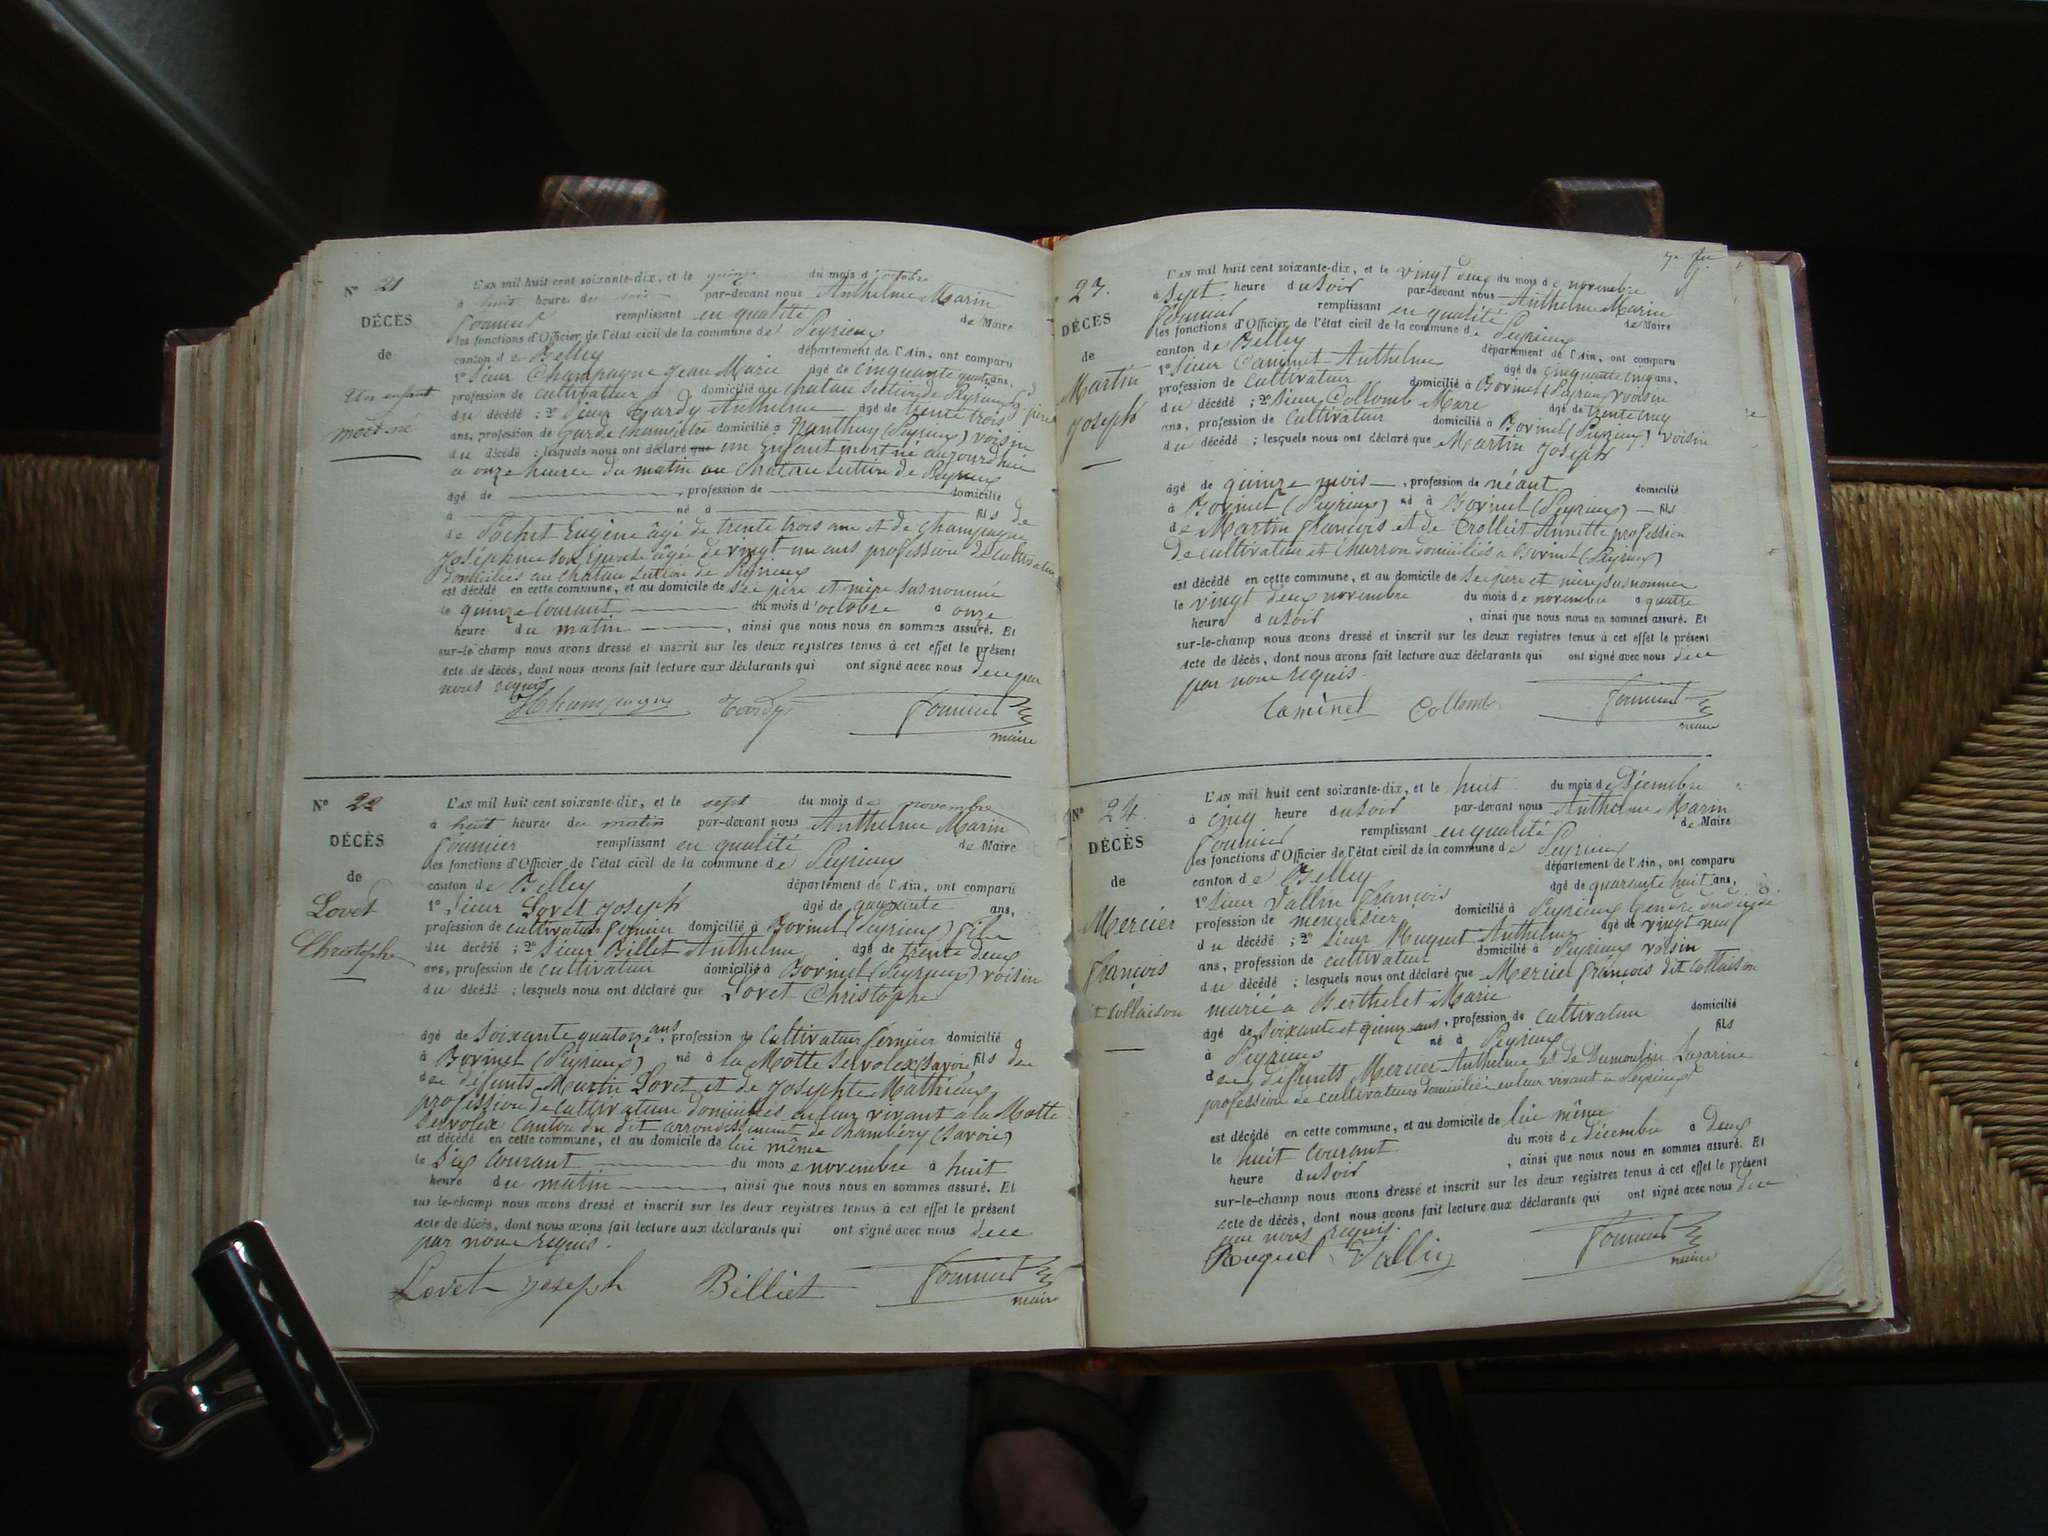 N° 21
DÉCÈS
de
Un enfant
mort-né
L'AN mil huit cent soixante-dix, et le quinze du mois d'octobre
à huit heures du soir par-devant nous Anthelme Marin
Fournier remplissant en qualité de Maire
les fonctions d'Officier de l'état civil de la commune de Peyrieux
canton de Belley département de l'Ain, ont comparu
1° Sieur Champagne Jean Marie âgé de cinquante quatre ans,
profession de cultivateur domicilié au chateau section de Peyrieux père
du décédé ; 2° Sieur Tardy Anthelme âgé de trente trois
ans, profession de Garde champêtre domicilié à Nanthuy (Peyrieux) voisin
du décédé ; lesquels nous ont déclaré que un Enfant mort né aujourdhui
a onze heures du matin au Chateau section de Peyrieux
âgé de , profession de domicilié
à né à fils de
de Pochet Eugène âgé de trente trois ans et de Champagne
Joséphine son Epouse âgée de vingt un ans profession de cultivateurs
domiciliés au chateau section de Peyrieux
est décédé en cette commune, et au domicile de ses père et mère susnommé
le quinze courant du mois d'octobre à onze
heure du matin , ainsi que nous nous en sommes assuré. Et
sur-le-champ nous avons dressé et inscrit sur les deux registres tenus à cet effet le présent
acte de décès, dont nous avons fait lecture aux déclarants qui ont signé avec nous de ce par
nous requis
Champagne Tardy Fournier
maire
N° 22
DÉCÈS
de
Lovet
Christophe
L'AN mil huit cent soixante-dix, et le sept du mois de novembre
à huit heures du matin par-devant nous Anthelme Marin
Fournier remplissant en qualité de Maire
les fonctions d'Officier de l'état civil de la commune de Peyrieux
canton de Belley département de l'Ain, ont comparu
1° Sieur Lovet Joseph âgé de quarante ans,
profession de cultivateur fermier domicilié à Bovinel (Peyrieux) fils
du décédé ; 2° Sieur Billet Anthelme âgé de trente deux
ans, profession de cultivateur domicilié à Bovinel (Peyrieux) voisin
du décédé ; lesquels nous ont déclaré que Lovet Christophe
âgé de soixante quatorze ans, profession de cultivateur fermier domicilié
à Bovinel (Peyrieux) né à la Motte Servolex (Savoie) fils de
des défunts Martin Lovet et de Josephte Mathieux
profession de cultivateurs domiciliés en leur vivant à la Motte
Servolex canton du dit arrondissement de Chambéry (Savoie)
est décédé en cette commune, et au domicile de lui même
le six courant du mois de novembre à huit
heure du matin , ainsi que nous nous en sommes assuré. Et
sur-le-champ nous avons dressé et inscrit sur les deux registres tenus à cet effet le présent
acte de décès, dont nous avons fait lecture aux déclarants qui ont signé avec nous de ce
par nous requis.
Lovet Joseph Billiet Fournier
maire
23.
DÉCÈS
de
Martin
Joseph
L'AN mil huit cent soixante-dix, et le vingt deux du mois de novembre
à sept heure du soir par-devant nous Anthelme Marin
Fournier remplissant en qualité de Maire
les fonctions d'Officier de l'état civil de la commune de Peyrieux
canton de Belley département de l'Ain, ont comparu
1° Sieur Caminet Anthelme âgé de cinquante cinq ans,
profession de cultivateur domicilié à Bovinel (Peyrieux) voisin
du décédé ; 2° Sieur Collomb Marc âgé de trente cinq
ans, profession de cultivateur domicilié à Bovinel (Peyrieux) voisin
du décédé ; lesquels nous ont déclaré que Martin Joseph
âgé de quinze mois , profession de néant domicilié
à Bovinel (Peyrieux) né à Bovinel (Peyrieux) fils
de Martin François et de Trolliet Annette profession
de cultivateur et charron domiciliés à Bovinel (Peyrieux)
est décédé en cette commune, et au domicile de ses père et mère susnommés
le vingt deux novembre du mois de novembre à quatre
heure du soir , ainsi que nous nous en sommes assuré. Et
sur-le-champ nous avons dressé et inscrit sur les deux registres tenus à cet effet le présent
acte de décès, dont nous avons fait lecture aux déclarants qui ont signé avec nous de ce
par nous requis.
Caminet Collomb Fournier
maire
N° 24.
DÉCÈS
de
Mercier
François
dit collaison
L'AN mil huit cent soixante-dix, et le huit du mois de Décembre
à cinq heure du soir par-devant nous Anthelme Marin
Fournier remplissant en qualité de Maire
les fonctions d'Officier de l'état civil de la commune de Peyrieux
canton de Belley département de l'Ain, ont comparu
1° Sieur Vallin François âgé de quarante huit ans,
profession de menuisier domicilié à Peyrieux Gendre
du décédé ; 2° Sieur Huguet Anthelme âgé de vingt neuf
ans, profession de cultivateur domicilié à Peyrieux voisin
du décédé ; lesquels nous ont déclaré que Mercier François dit collaison
marié a Berthelet Marie
âgé de soixante et quinze ans, profession de cultivateur domicilié
à Peyrieux né à Peyrieux fils
des défunts Mercier Anthelme et de Dumoulin Lazarine
profession de cultivateurs domiciliés en leur vivant à Peyrieux
est décédé en cette commune, et au domicile de lui même
le huit courant du mois de décembre à deux
heure du soir , ainsi que nous nous en sommes assuré. Et
sur-le-champ nous avons dressé et inscrit sur les deux registres tenus à cet effet le présent
acte de décès, dont nous avons fait lecture aux déclarants qui ont signé avec nous de ce
par nous requis.
Huguet Vallin Fournier
maire